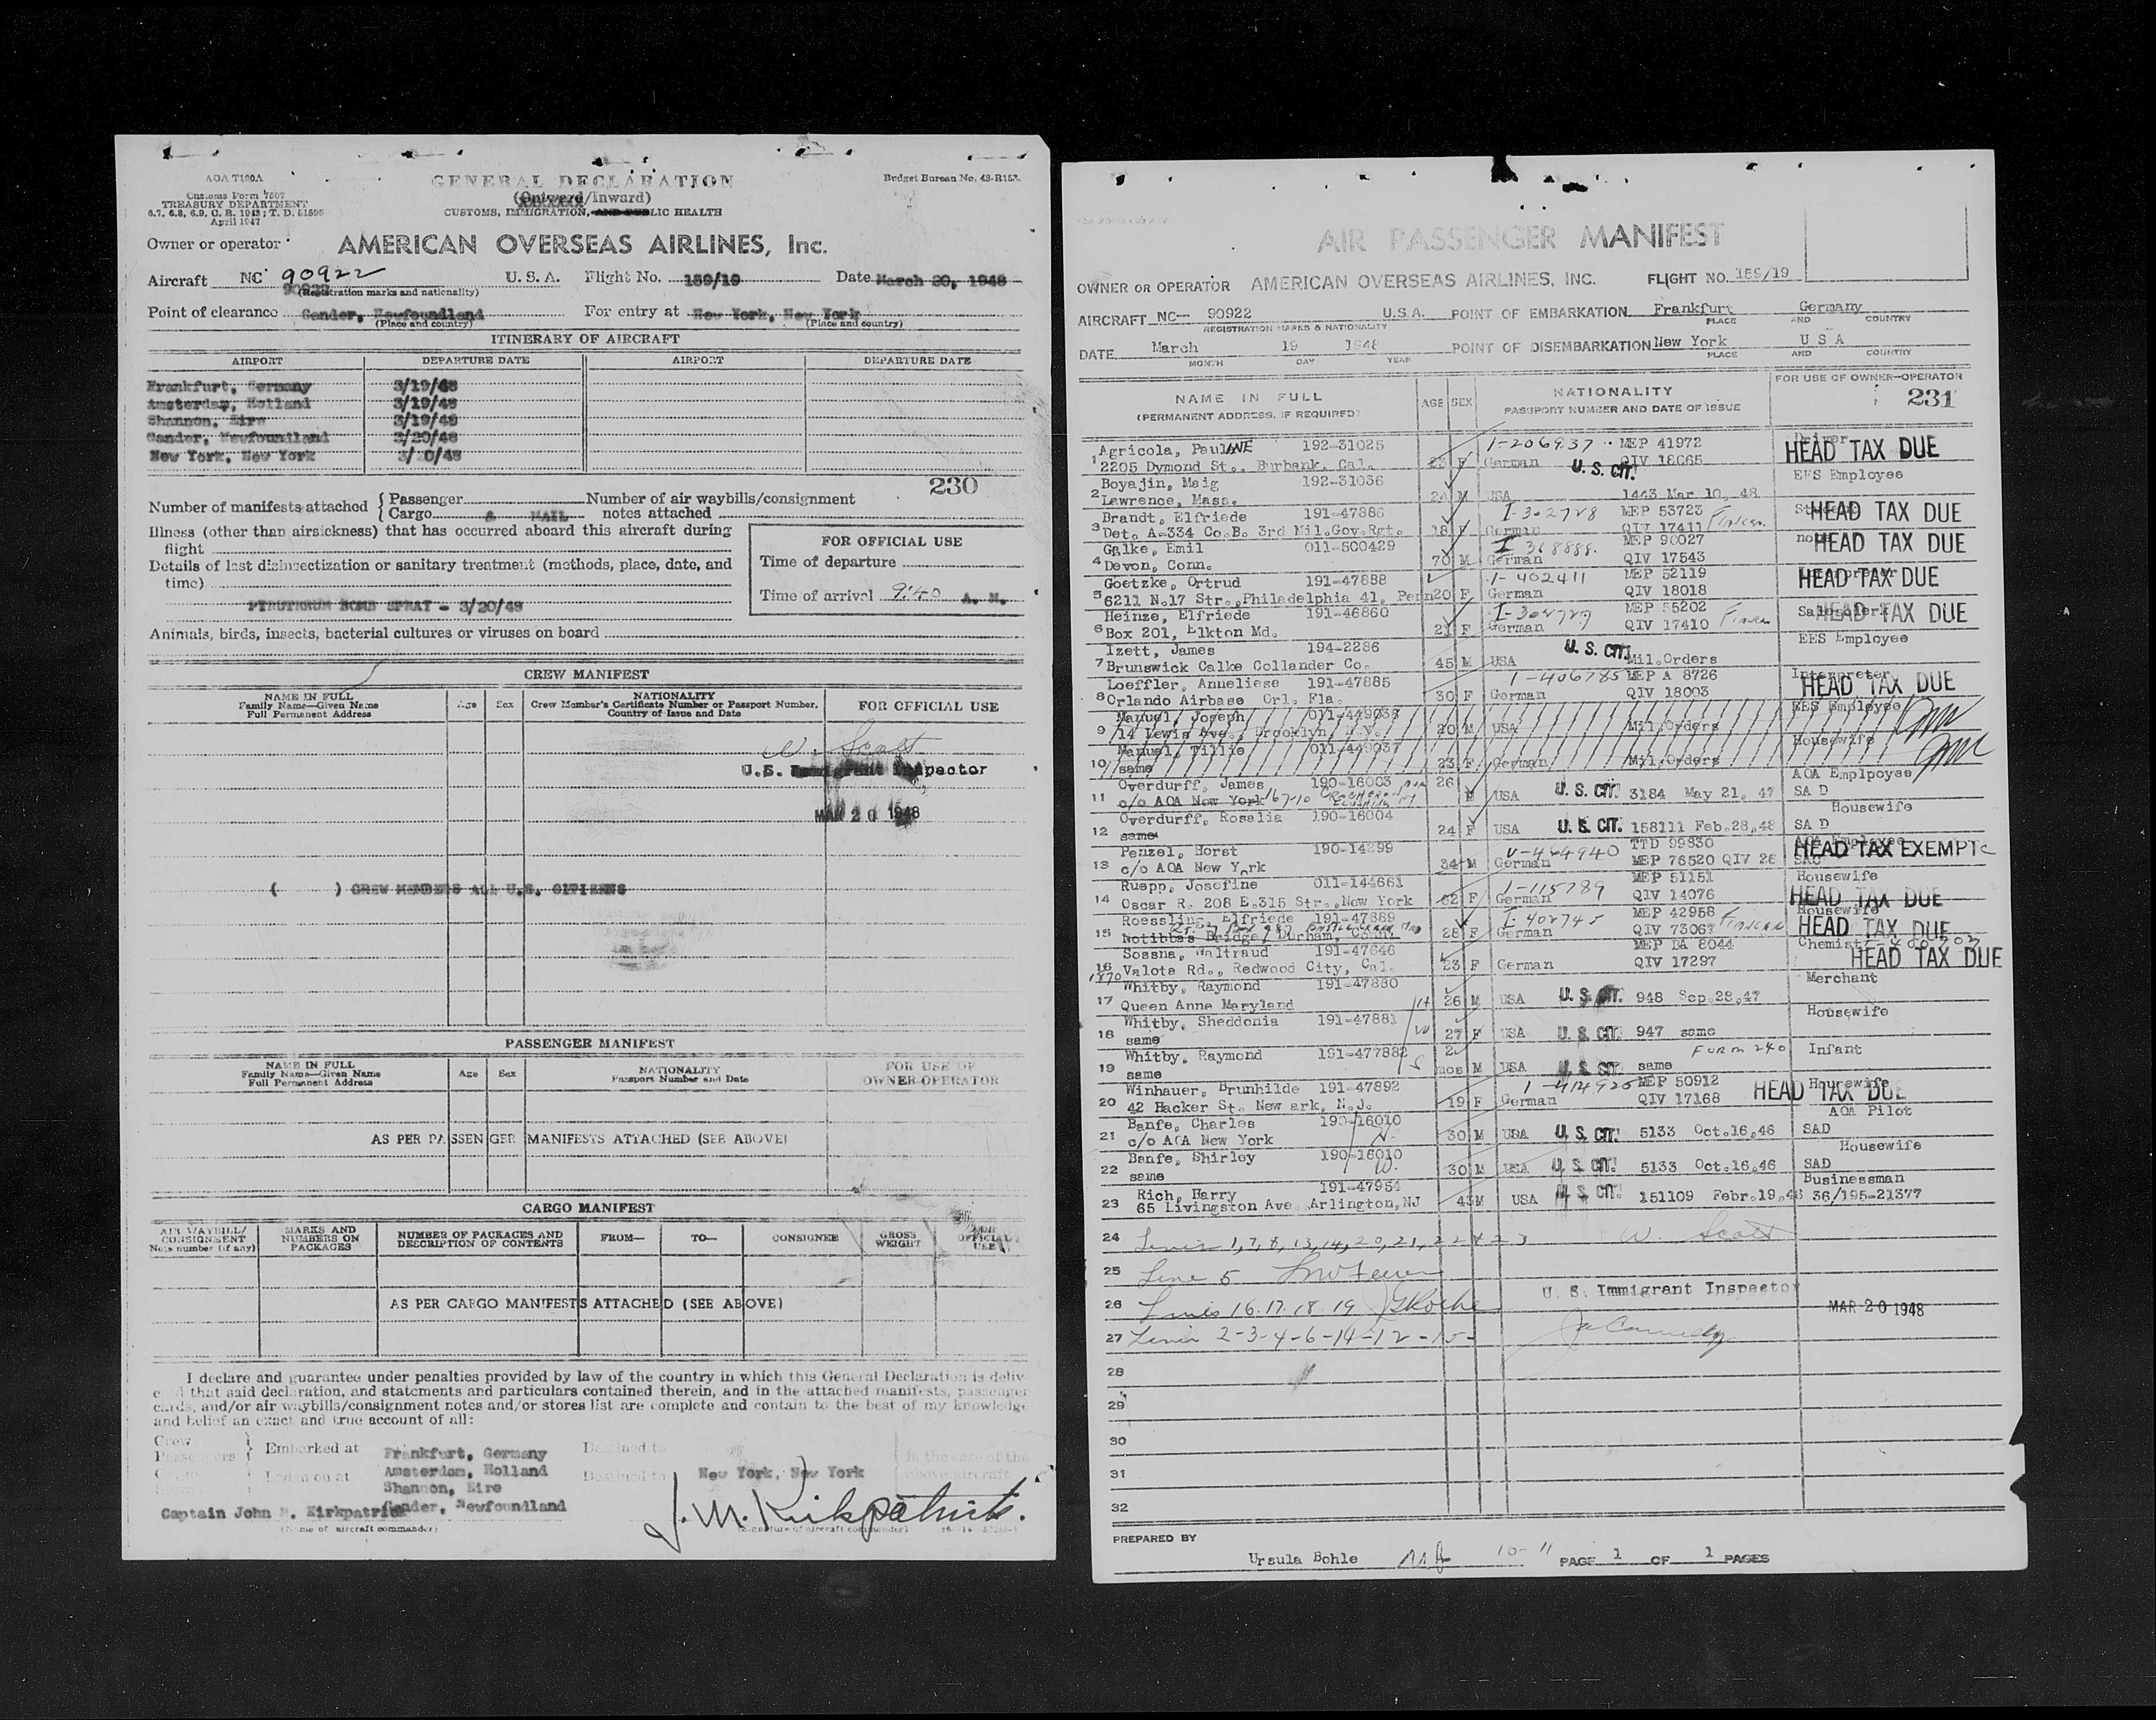 AOA T100A
Customs Form 7507
TREASURY DEPARTMENT
6.7, 6.8, 6.9, C. R. 1943; T. D. 51595
April 1947
GENERAL DECLARATION
(Outward/Inward)
CUSTOMS, IMMIGRATION, AND PUBLIC HEALTH
Budget Bureau No. 48-R153.
Owner or operator AMERICAN OVERSEAS AIRLINES, Inc.
Aircraft NC 90922 U. S. A. Flight No. 159/19 Date March 20, 1948
(Registration marks and nationality)
Point of clearance Gander, Newfoundland For entry at New York, New York
(Place and country) (Place and country)
ITINERARY OF AIRCRAFT
AIRPORT DEPARTURE DATE AIRPORT DEPARTURE DATE
Frankfurt, Germany 3/19/48
Amsterdam, Holland 3/19/48
Shannon, Eire 3/19/48
Gander, Newfoundland 3/20/48
New York, New York 3/20/48
230
Number of manifests attached { Passenger Number of air waybills/consignment
Cargo & MAIL notes attached
Illness (other than airsickness) that has occurred aboard this aircraft during
flight
Details of last disinsectization or sanitary treatment (methods, place, date, and
time)
PYRUTHRUM BOMB SPRAY - 3/20/48
FOR OFFICIAL USE
Time of departure
Time of arrival 9:40 A. M.
Animals, birds, insects, bacterial cultures or viruses on board
CREW MANIFEST
NAME IN FULL
Family Name—Given Name
Full Permanent Address
Age Sex
NATIONALITY
Crew Member's Certificate Number or Passport Number,
Country of Issue and Date
FOR OFFICIAL USE
W. Scott
U.S. Immigrant Inspector
MAR 20 1948
( ) CREW MEMBERS ALL U.S. CITIZENS
PASSENGER MANIFEST
NAME IN FULL
Family Name—Given Name
Full Permanent Address
Age Sex
NATIONALITY
Passport Number and Date
FOR USE OF
OWNER-OPERATOR
AS PER PASSENGER MANIFESTS ATTACHED (SEE ABOVE)
CARGO MANIFEST
AIR WAYBILL/
CONSIGNMENT
Note number (if any)
MARKS AND
NUMBERS ON
PACKAGES
NUMBER OF PACKAGES AND
DESCRIPTION OF CONTENTS
FROM— TO— CONSIGNEE
GROSS
WEIGHT
FOR
OFFICIAL
USE
AS PER CARGO MANIFESTS ATTACHED (SEE ABOVE)
I declare and guarantee under penalties provided by law of the country in which this General Declaration is deliv-
ered that said declaration, and statements and particulars contained therein, and in the attached manifests, passenger
cards, and/or air waybills/consignment notes and/or stores list are complete and contain to the best of my knowledge
and belief an exact and true account of all:
Crew
Passengers } Embarked at Frankfurt, Germany Destined to
Cargo Laden on at Amsterdam, Holland Destined to New York, New York
In the case of the
above aircraft
Shannon, Eire
Captain John M. Kirkpatrick Gander, Newfoundland
(Name of aircraft commander)
J. M. Kirkpatrick.
(Signature of aircraft commander)
AIR PASSENGER MANIFEST
OWNER OR OPERATOR AMERICAN OVERSEAS AIRLINES, INC. FLIGHT NO. 159/19
AIRCRAFT NC— 90922 U.S.A. POINT OF EMBARKATION Frankfurt Germany
REGISTRATION MARKS & NATIONALITY PLACE AND COUNTRY
DATE March 19 1948 POINT OF DISEMBARKATION New York U S A
MONTH DAY YEAR PLACE AND COUNTRY
NAME IN FULL
(PERMANENT ADDRESS, IF REQUIRED)
AGE SEX
NATIONALITY
PASSPORT NUMBER AND DATE OF ISSUE
FOR USE OF OWNER-OPERATOR
231
Agricola, PaulINE 192-31025 I-206937 MEP 41972 HEAD TAX DUE
1 2205 Dymond St., Burbank, Cal. 23 F German QIV 18065
Boyajin, Maig 192-31036 U. S. CIT. EES Employee
2 Lawrence, Mass. 24 M USA 1443 Mar 10, 48
Brandt, Elfriede 191-47886 I-302728 MEP 53723 HEAD TAX DUE
3 Det. A-334 Co.B. 3rd Mil.Gov.Rgt. 18 F German QIV 17411 Fiancee
Galke, Emil 011-500429 I 368888. MEP 90027 none HEAD TAX DUE
4 Devon, Conn. 70 M German QIV 17543
Goetzke, Ortrud 191-47888 I-402411 MEP 52119 HEAD TAX DUE
5 6211 N.17 Str., Philadelphia 41, Penn 20 F German QIV 18018
Heinze, Elfriede 191-46860 MEP 55202 Salesclerk HEAD TAX DUE
6 Box 201, Elkton Md. 21 F German QIV 17410 Fiancee
Izett, James 194-2286 U. S. CIT. EES Employee
7 Brunswick Calke Collander Co. 45 M USA Mil.Orders
Loeffler, Anneliese 191-47885 I-406785 MEP A 8726 Interpreter HEAD TAX DUE
8 Orlando Airbase Orl. Fla. 30 F German QIV 18003
Manuel, Joseph 011-449036 EES Employee
9 14 Lewis Ave., Brooklyn, N.Y. 20 M USA Mil.Orders
Manuel, Tillie 011-449037 Housewife
10 same 23 F German Mil.Orders
Overdurff, James 190-16003 26 AOA Emplpoyee
11 c/o AOA New York M USA U. S. CIT. 3184 May 21, 47 SA D
Overdurff, Rosalia 190-16004 Housewife
12 same 24 F USA U. S. CIT. 158111 Feb.28,48 SA D
Penzel, Horst 190-14299 V-464940 TTD 99830 AOA Employee HEAD TAX EXEMPT
13 c/o AOA New York 34 M German MEP 76520 QIV 26
Ruepp, Josefine 011-144661 I-115789 MEP 51151 Housewife
14 Oscar R. 208 E.315 Str., New York 62 F German QIV 14076 HEAD TAX DUE
Roessling, Elfriede 191-47889 I-402745 MEP 42958 Housewife
15 Notibbs Bridge, Durham, Conn. 28 F German QIV 73067 HEAD TAX DUE
Sossna, Waltraud 191-47646 MEP BA 8044 Chemist
16 1870 Valota Rd., Redwood City, Cal. 23 F German QIV 17297 HEAD TAX DUE
Whitby, Raymond 191-47880 Merchant
17 Queen Anne Maryland H 26 M USA U. S. CIT. 948 Sep.28,47
Whitby, Sheddonia 191-47881 Housewife
18 same W 27 F USA U. S. CIT. 947 same
Whitby, Raymond 191-477882 FORM 240 Infant
19 same S mos M USA U. S. CIT. same
Winhauer, Brunhilde 191-47892 I-414925 MEP 50912 Housewife
20 42 Hacker St. New ark, N.J. 19 F German QIV 17168 HEAD TAX DUE
Banfe, Charles 190-16010 AOA Pilot
21 c/o AOA New York H. 30 M USA U. S. CIT. 5133 Oct.16,46 SAD
Banfe, Shirley 190-16010 Housewife
22 same W. 30 M USA U. S. CIT. 5133 Oct.16,46 SAD
Rich, Harry 191-47954 Businessman
23 65 Livingston Ave. Arlington, NJ 43 M USA U. S. CIT. 151109 Febr.19,48 36/195-21377
24 Lines 1, 7, 8, 13, 14, 20, 21, 22 & 23 W. Scott
25 Line 5
U. S. Immigrant Inspector
26 Lines 16. 17. 18. 19 MAR 20 1948
27 Lines 2-3-4-6-11-12-15-
28
29
30
31
32
PREPARED BY
Ursula Bohle 10-11 PAGE 1 OF 1 PAGES